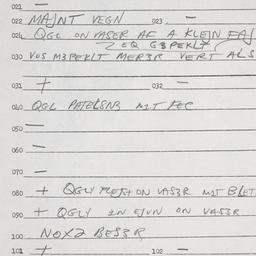 021 —
022 MAJNT VEGN 023. —
024 QGL ON VASER AF A KLEJN FAJ
2 EQ G3PEKLT
030 VOS M3PEKLT MER3R VERT ALS
031 + 032 —
040 QGL PATELSN3 MIT FEC
050 —
060 —
070 —
080 + QGLY ON VAS3R MIT BLET
090 + QGLY IN EJVN ON VAS3R
100 NOX2 BES3R
101 + 102 —